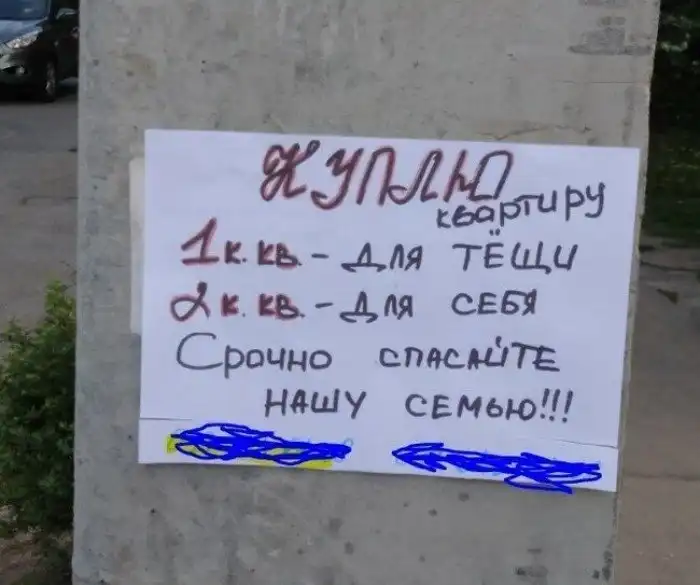 КУПЛЮ
квартиру
1 к. кв. - для тёщи
2 к. кв. - для себя
Срочно спасайте
нашу семью!!!